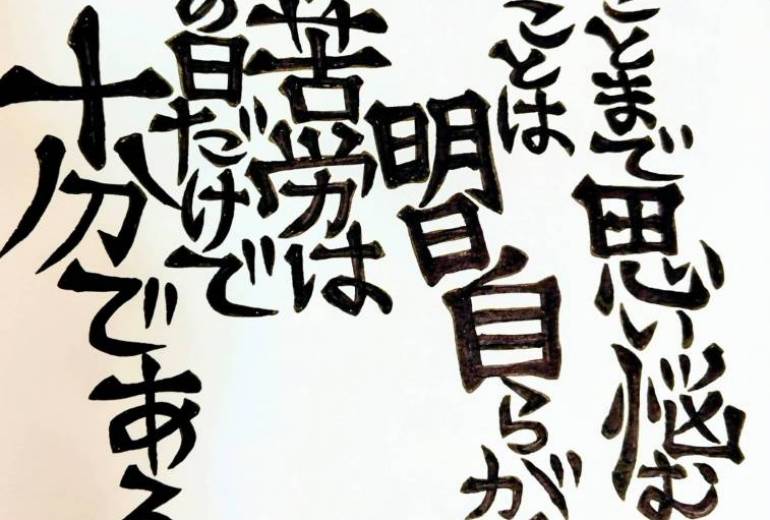 ことまで思い悩む
ことは明日自らが
苦労は
の日だけで
十分である